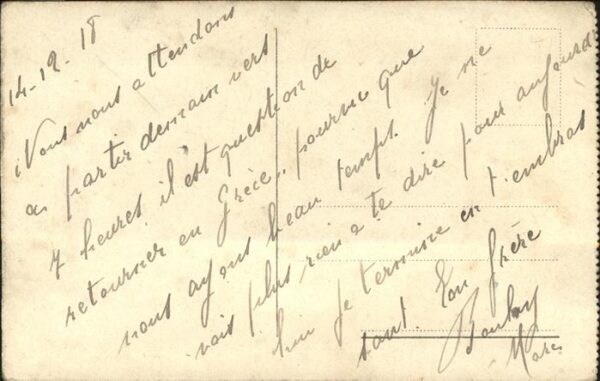 14-12-18
Nous nous attendons
a partir demain vers
7 heures il est question de
retourner en Grèce, pourvu que
nous ayons beau temps. Je ne
vois plus rien a te dire pour aujourd
hui je termine en t'embras
sant. Ton frère
Marc